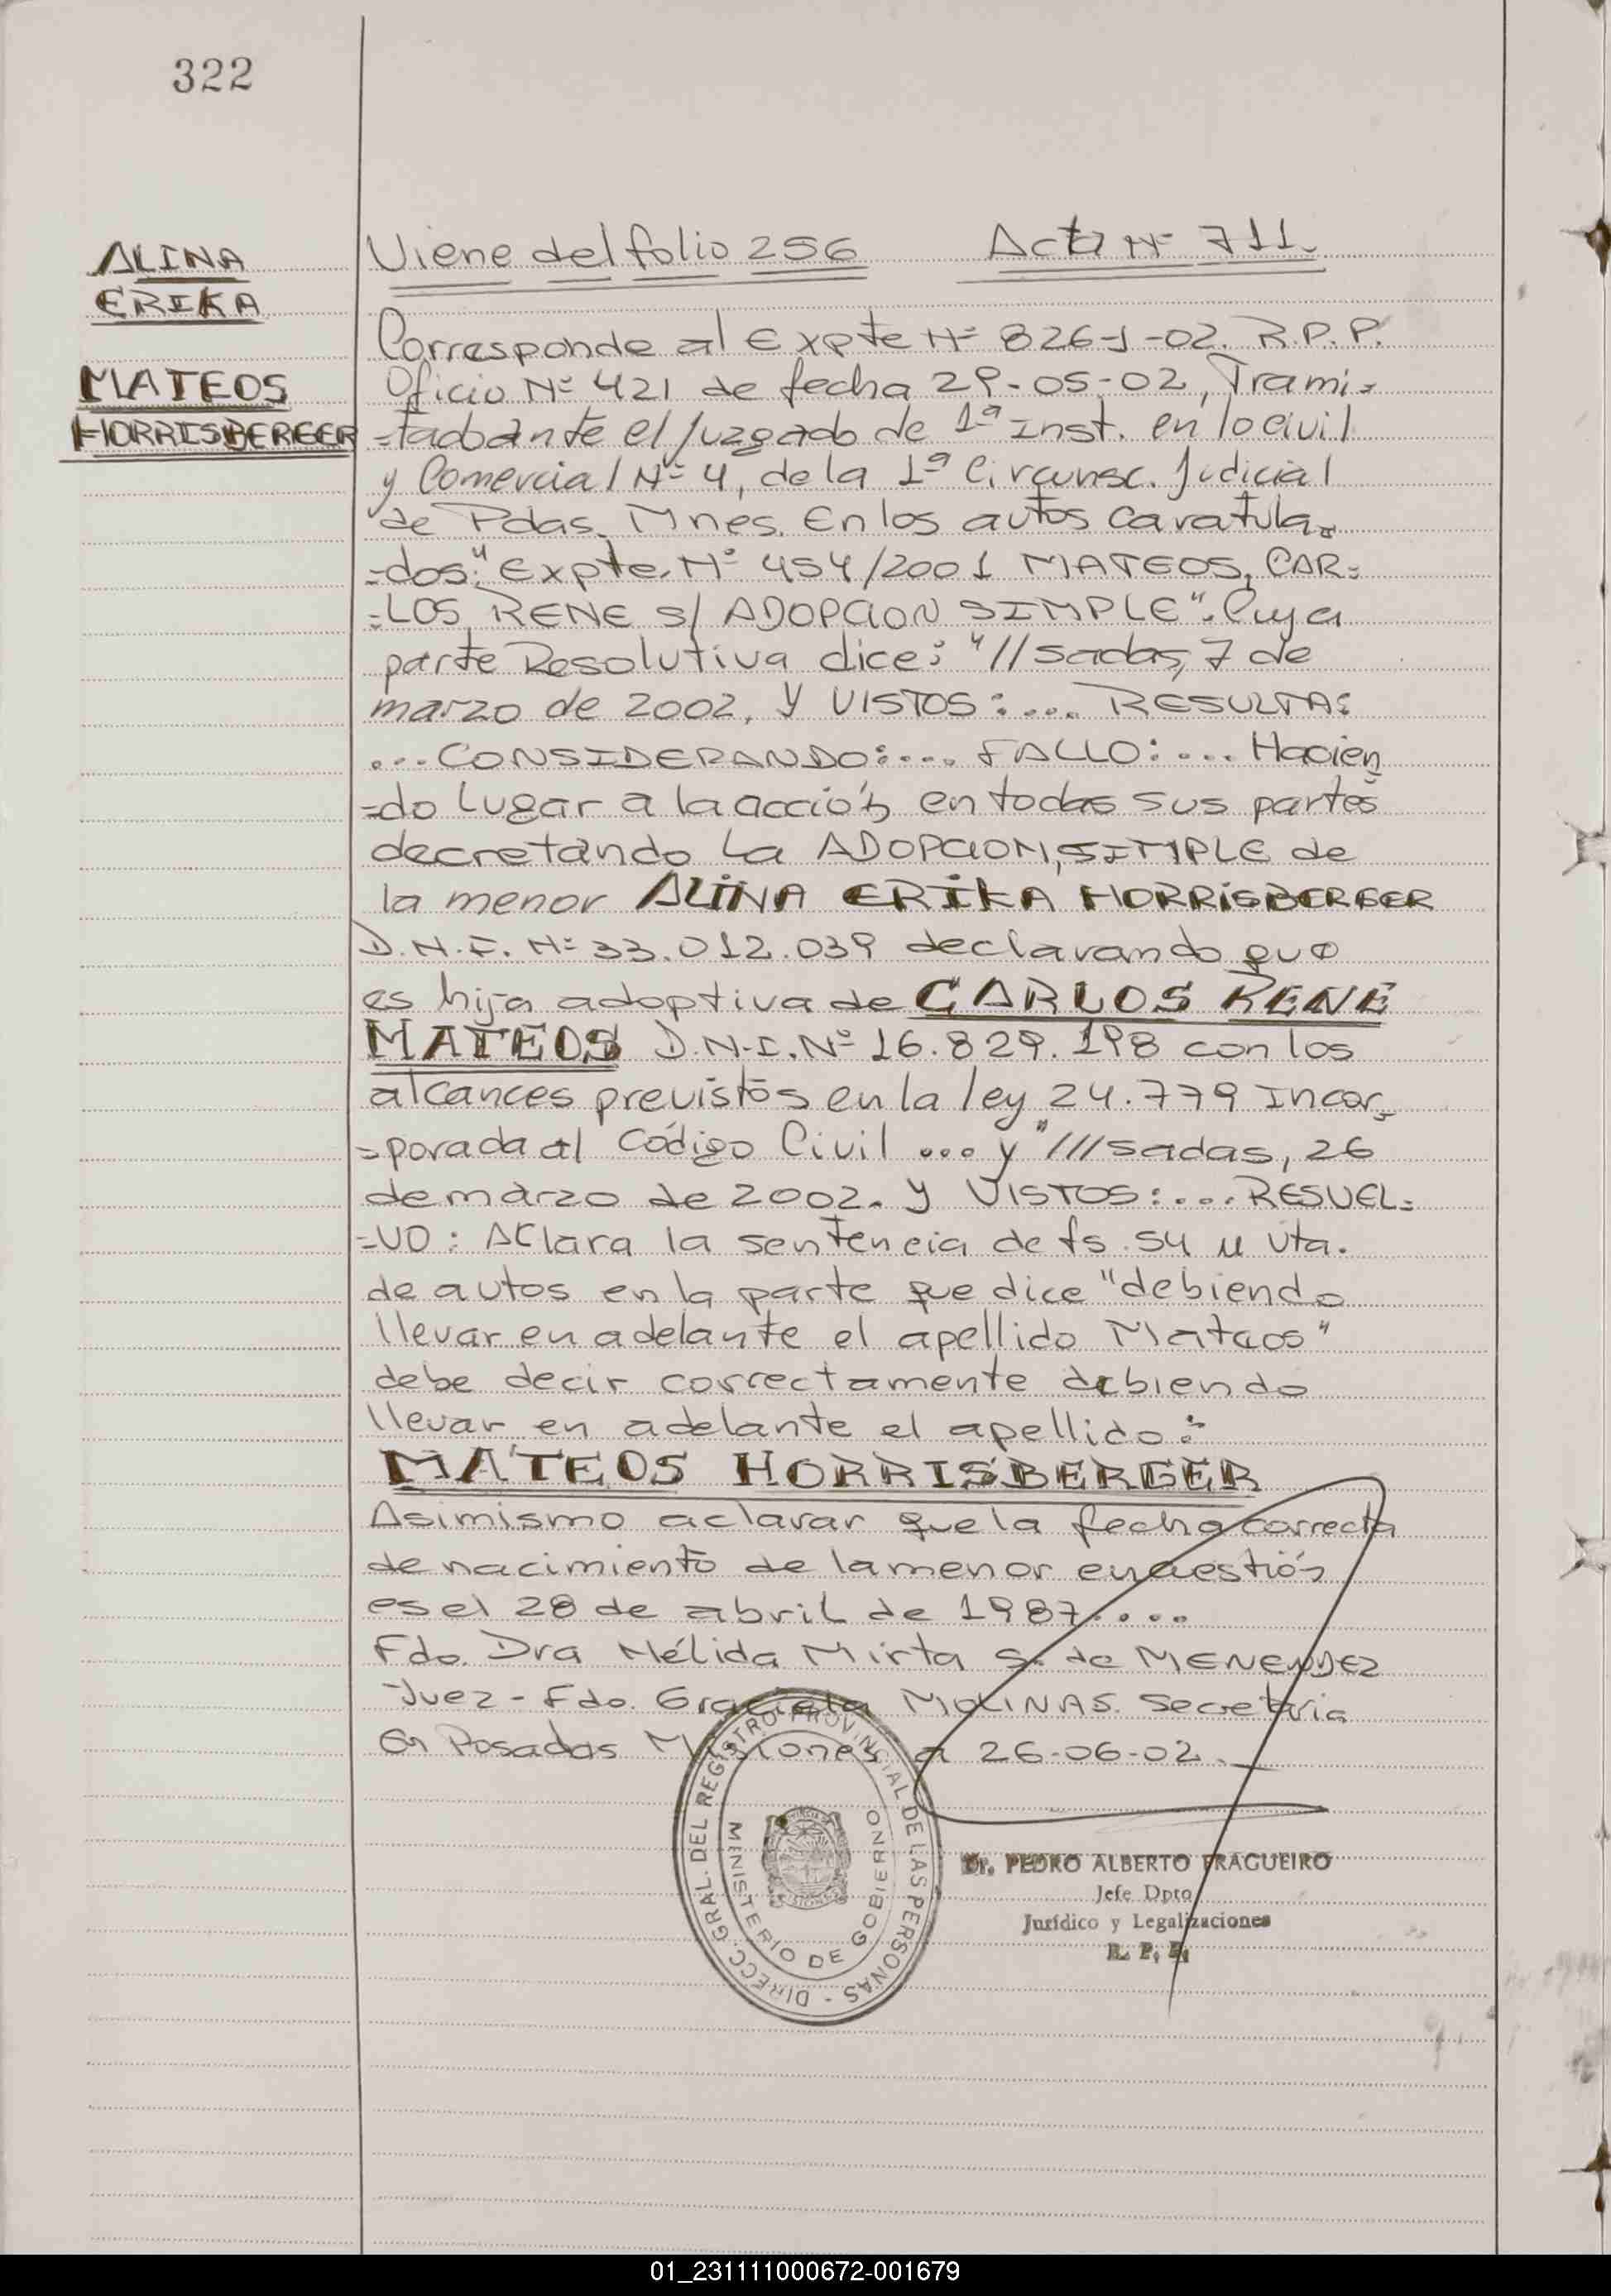 322
ALINA
ERIKA
MATEOS
HORRISBERGER
Viene del folio 256 Acta Nº 711.
Corresponde al Expte Nº 826-J-02. R.P.P.
Oficio Nº 421 de fecha 29-05-02, Trami=
=tado ante el Juzgado de 1ª Inst. en lo Civil
y Comercial Nº 4, de la 1ª Circunsc. Judicial
de Pdas. Mnes. En los autos caratula=
=dos: "Expte. Nº 454/2001 MATEOS, CAR=
=LOS RENE S/ ADOPCION SIMPLE". Cuya
parte Resolutiva dice: "//sadas, 7 de
marzo de 2002. Y VISTOS:.... RESULTA:
...CONSIDERANDO:.... FALLO:.... Hacien
=do Lugar a la acción en todas sus partes
decretando La ADOPCION, SIMPLE de
la menor ALINA ERIKA HORRISBERGER
D.N.I. Nº 33.012.039 declarando que
es hija adoptiva de CARLOS RENE
MATEOS D.N.I. Nº 16.829.198 con los
alcances previstos en la ley 24.779 Incor=
=porada al Código Civil ... y "///sadas, 26
de marzo de 2002. Y VISTOS:.... RESUEL=
=VO: Aclara la sentencia de fs. 54 u vta.
de autos en la parte que dice "debiendo
llevar en adelante el apellido Mateos"
debe decir correctamente debiendo
llevar en adelante el apellido:
MATEOS HORRISBERGER
Asimismo aclarar que la fecha correcta
de nacimiento de la menor en cuestión
es el 28 de abril de 1987....
Fdo. Dra Nélida Mirta S. de MENENDEZ
Juez - Fdo. Graciela MOLINAS. Secretaria
En Posadas Misiones a 26-06-02.
DIRECC. GRAL. DEL REGISTRO PROVINCIAL DE LAS PERSONAS -
MINISTERIO DE GOBIERNO
Dr. PEDRO ALBERTO FRAGUEIRO
Jefe Dpto
Jurídico y Legalizaciones
R. P. P.
01_231111000672-001679